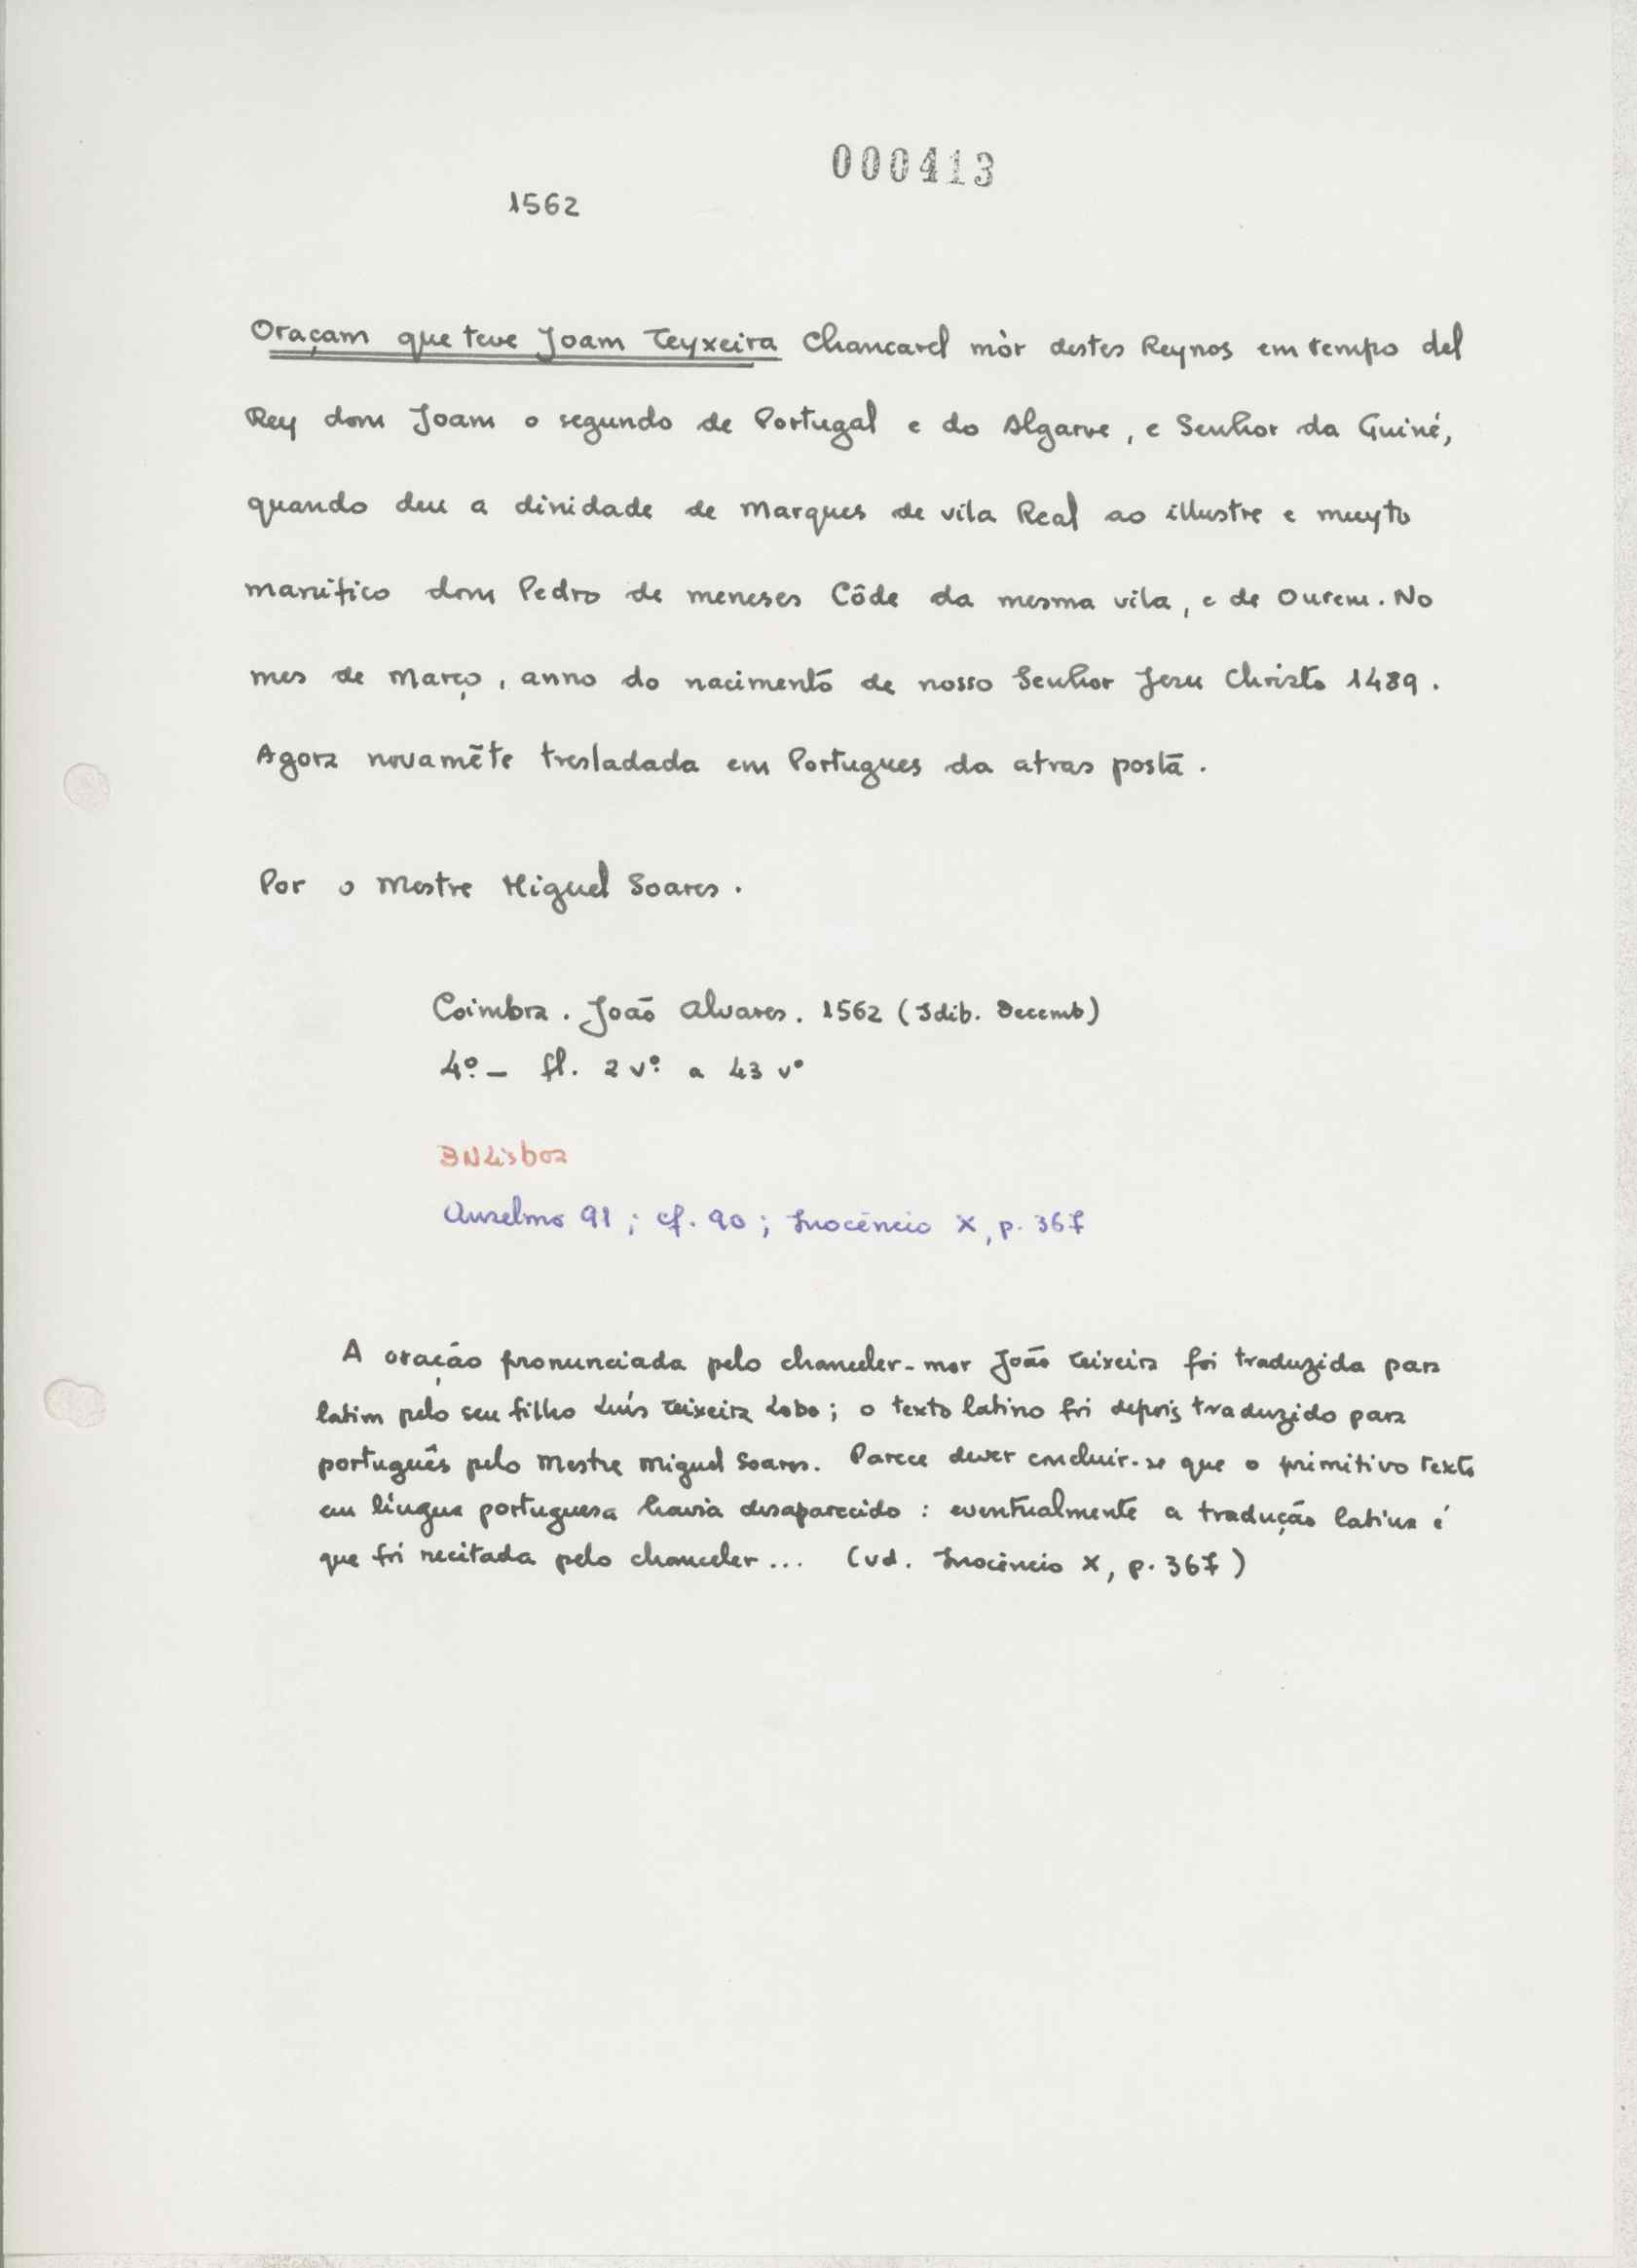 000413
1562
Oraçam que teve Joam Teyxeira Chancarel mòr destes Reynos em tempo del
Rey dom Joam o segundo de Portugal e do Algarve, e Senhor da Guiné,
quando deu a dinidade de Marques de vila Real ao illustre e muyto
manifico dom Pedro de meneses Cõde da mesma vila, e de Ourem. No
mes de Março, anno do nacimento de nosso Senhor Jesu Christo 1489.
Agora novamẽte tresladada em Portugues da atras postã.
Por o Mestre Miguel Soares.
Coimbra. João Alvares. 1562 (Idib. Decemb)
4º. - fl. 2 vº. a 43 vº
BNLisboa
Anselmo 91; cf. 90; Inocêncio X, p. 367
A oração pronunciada pelo chanceler-mor João Teixeira foi traduzida para
latim pelo seu filho Luís Teixeira Lobo; o texto latino foi depois traduzido para
português pelo Mestre Miguel Soares. Parece dever concluir-se que o primitivo texto
em língua portuguesa havia desaparecido: eventualmente a tradução latina é
que foi recitada pelo chanceler... (vd. Inocêncio X, p. 367)